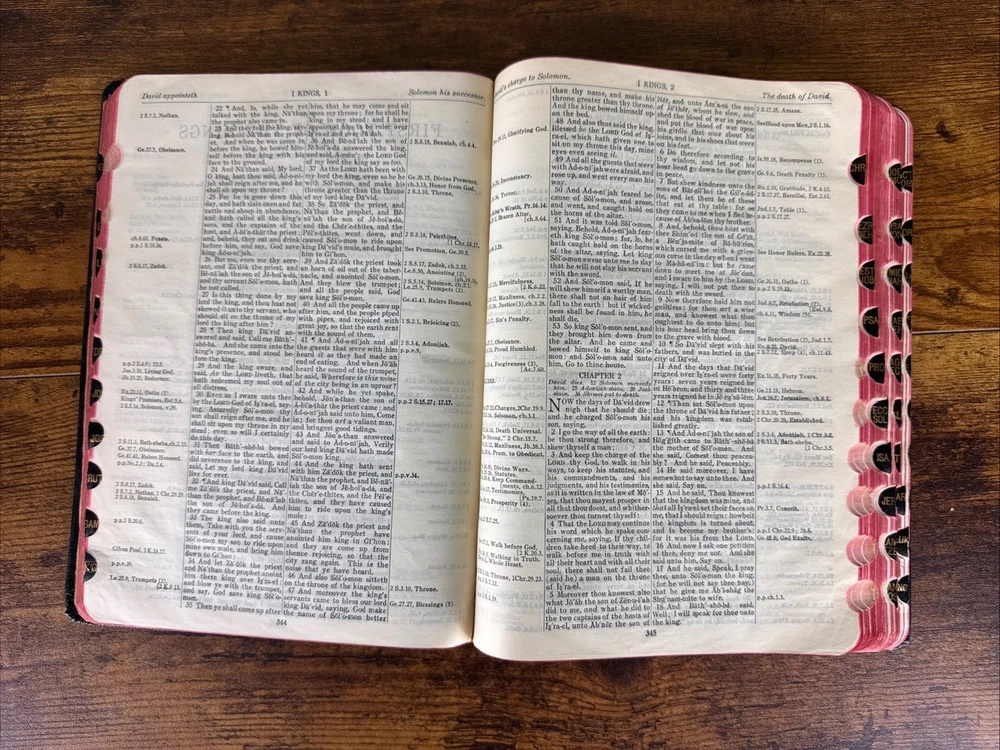 David appointeth
1 KINGS, 1
Solomon his successor.
2 S.7.2, Nathan.
Ge.37.7, Obeisance.
ch.8.65, Feasts.
p.p.1 S.10.24.
2 S.8.17, Zadok.
p.p.2 S.4.9; 12.5.
Jos.3.10, Living God.
2 S.5.14, Solomon, v.39.
2 S.11.3, Bath-sheba, ch.2.13.
Ge.37.7, Obeisance.
Ge.41.43, Rulers Honored.
p.p.Ne.2.3; Da.2.4.
2 S.8.17, Zadok.
2 S.7.2, Nathan, 1 Chr.29.29.
2 S.8.18, Benaiah.
p.p.2 S.20.6.
Gihon Pool, 2 K.18.17.
p.p.v.39.
Le.25.9, Trumpets (2)
22 ¶ And, lo, while she yet
talked with the king, Nā'than
the prophet also came in.
23 And they told the king, say-
ing, Behold Nā'than the proph-
et. And when he was come in
before the king, he bowed him-
self before the king with his
face to the ground.
24 And Nā'than said, My lord,
O king, hast thou said, Ad-o-nī'-
jah shall reign after me, and he
shall sit upon my throne?
25 For he is gone down this
day, and hath slain oxen and fat
cattle and sheep in abundance,
and hath called all the king's
sons, and the captains of the
host, and Ā-bī'a-thar the priest;
and, behold, they eat and drink
before him, and say, God save
king Ad-o-nī'jah.
26 But me, even me thy serv-
ant, and Zā'dŏk the priest, and
Bĕ-nā'iah the son of Jĕ-hoi'a-dȧ,
and thy servant Sŏl'o-mon, hath
he not called.
27 Is this thing done by my
lord the king, and thou hast not
shewed it unto thy servant, who
should sit on the throne of my
lord the king after him?
28 ¶ Then king Dā'vid an-
swered and said, Call me Băth'-
shĕ-bȧ. And she came into the
king's presence, and stood be-
fore the king.
29 And the king sware, and
said, As the LORD liveth, that
hath redeemed my soul out of
all distress,
30 Even as I sware unto thee
by the LORD God of Iṣ'ra-el, say-
ing, Assuredly Sŏl'o-mon thy
son shall reign after me, and he
shall sit upon my throne in my
stead; even so will I certainly
do this day.
31 Then Băth'-shĕ-bȧ bowed
with her face to the earth, and
did reverence to the king, and
said, Let my lord king Dā'vid
live for ever.
32 ¶ And king Dā'vid said, Call
me Zā'dŏk the priest, and Nā'-
than the prophet, and Bĕ-nā'iah
the son of Jĕ-hoi'a-dȧ. And
they came before the king.
33 The king also said unto
them, Take with you the serv-
ants of your lord, and cause
Sŏl'o-mon my son to ride upon
mine own mule, and bring him
down to Gī'hon:
34 And let Zā'dŏk the priest
and Nā'than the prophet anoint
him there king over Iṣ'ra-el:
and blow ye with the trumpet,
and say, God save king Sŏl'o-
mon.
35 Then ye shall come up after
him, that he may come and sit
upon my throne; for he shall be
king in my stead: and I have
appointed him to be ruler over
Iṣ'ra-el and over Jū'dah.
36 And Bĕ-nā'iah the son of
Jĕ-hoi'a-dȧ answered the king,
and said, Ā-mĕn': the LORD God
of my lord the king say so too.
37 As the LORD hath been with
my lord the king, even so be he
with Sŏl'o-mon, and make his
throne greater than the throne
of my lord king Dā'vid.
38 So Zā'dŏk the priest, and
Nā'than the prophet, and Bĕ-
nā'iah the son of Jĕ-hoi'a-dȧ,
and the Chĕr'e-thītes, and the
Pĕl'e-thītes, went down, and
caused Sŏl'o-mon to ride upon
king Dā'vid's mule, and brought
him to Gī'hon.
39 And Zā'dŏk the priest took
an horn of oil out of the taber-
nacle, and anointed Sŏl'o-mon.
And they blew the trumpet;
and all the people said, God
save king Sŏl'o-mon.
40 And all the people came up
after him, and the people piped
with pipes, and rejoiced with
great joy, so that the earth rent
with the sound of them.
41 ¶ And Ad-o-nī'jah and all
the guests that were with him
heard it as they had made an
end of eating. And when Jō'ăb
heard the sound of the trumpet,
he said, Wherefore is this noise
of the city being in an uproar?
42 And while he yet spake,
behold, Jŏn'a-than the son of
Ā-bī'a-thar the priest came: and
Ad-o-nī'jah said unto him, Come
in; for thou art a valiant man,
and bringest good tidings.
43 And Jŏn'a-than answered
and said to Ad-o-nī'jah, Verily
our lord king Dā'vid hath made
Sŏl'o-mon king.
44 And the king hath sent
with him Zā'dŏk the priest, and
Nā'than the prophet, and Bĕ-nā'-
iah the son of Jĕ-hoi'a-dȧ, and the
Chĕr'e-thītes, and the Pĕl'e-
thītes, and they have caused
him to ride upon the king's
mule:
45 And Zā'dŏk the priest and
Nā'than the prophet have
anointed him king in Gī'hon:
and they are come up from
thence rejoicing, so that the
city rang again. This is the
noise that ye have heard.
46 And also Sŏl'o-mon sitteth
on the throne of the kingdom.
47 And moreover the king's
servants came to bless our lord
king Dā'vid, saying, God make
the name of Sŏl'o-mon better
2 S.8.18, Benaiah, ch.4.4.
Ge.28.15, Divine Presence.
ch.3.13, Honor from God.
2 S.3.10, Throne.
2 S.8.18, Pelethites,
[1 Chr.18.17.
See Promotion, Ge.39.5.
2 S.8.17, Zadok, ch.2.35.
Le.8.30, Anointing (2).
2 S.5.14, Solomon, ch.2.1.
Le.25.9, Trumpets (2).
Ge.41.43, Rulers Honored.
1 S.2.1, Rejoicing (2).
2 S.3.4, Adonijah.
p.p.v.9.
p.p.2 S.15.27; 17.17.
p.p.v.34.
2 S.3.10, Throne.
Ge.27.27, Blessings (5).
344
David's charge to Solomon.
1 KINGS, 2
The death of David.
Glorifying God.
Inconstancy.
Terror.
King's Wrath, Pr.16.14.
Brazen Altar,
[ch.8.64.
Mercifulness,
[2 K.6.22.
Manliness, ch.2.2.
Justice(1), ch.3.28.
Sin's Penalty.
Obeisance.
Proud Humbled.
Forgiveness (3)
[Ac.7.60.
Charges, 2 Chr.19.9.
Solomon, ch.3.1.
Death Universal.
Strong, 2 Chr.15.7.
Manliness, Jb.38.3.
Prom. to Obedient.
Divine Ways.
Statutes.
Keep Command-
ments, ch.6.12.
Testimonies,
[Ps.19.7.
Prosperity (4).
p.p.2 S.7.25.
Walk before God,
[2 K.20.3.
Walking in Truth.
Whole Heart.
Throne, 1 Chr.29.23.
than thy name, and make his
throne greater than thy throne.
And the king bowed himself up-
on the bed.
48 And also thus said the king,
Blessed be the LORD God of Iṣ'-
ra-el, which hath given one to
sit on my throne this day, mine
eyes even seeing it.
49 And all the guests that were
with Ad-o-nī'jah were afraid, and
rose up, and went every man his
way.
50 ¶ And Ad-o-nī'jah feared be-
cause of Sŏl'o-mon, and arose,
and went, and caught hold on
the horns of the altar.
51 And it was told Sŏl'o-mon,
saying, Behold, Ad-o-nī'jah fear-
eth king Sŏl'o-mon: for, lo, he
hath caught hold on the horns
of the altar, saying, Let king
Sŏl'o-mon swear unto me to day
that he will not slay his servant
with the sword.
52 And Sŏl'o-mon said, If he
will shew himself a worthy man,
there shall not an hair of him
fall to the earth: but if wicked-
ness shall be found in him, he
shall die.
53 So king Sŏl'o-mon sent, and
they brought him down from
the altar. And he came and
bowed himself to king Sŏl'o-
mon: and Sŏl'o-mon said unto
him, Go to thine house.
CHAPTER 2
David dies. 12 Solomon succeeds
him. 25 Adonijah slain. 28 Joab slain.
36 Shimei put to death.
NOW the days of Dā'vid drew
nigh that he should die;
and he charged Sŏl'o-mon his
son, saying,
2 I go the way of all the earth:
be thou strong therefore, and
shew thyself a man;
3 And keep the charge of the
LORD thy God, to walk in his
ways, to keep his statutes, and
his commandments, and his
judgments, and his testimonies,
as it is written in the law of Mō'-
ṣeṣ, that thou mayest prosper in
all that thou doest, and whither-
soever thou turnest thyself:
4 That the LORD may continue
his word which he spake con-
cerning me, saying, If thy chil-
dren take heed to their way, to
walk before me in truth with
all their heart and with all their
soul, there shall not fail thee
(said he) a man on the throne
of Iṣ'ra-el.
5 Moreover thou knowest also
what Jō'ăb the son of Zĕr-ụ-ī'ah
did to me, and what he did to
the two captains of the hosts of
Iṣ'ra-el, unto Ăb'nẽr the son of
Nẽr, and unto Ăm'a-sȧ the son
of Jē'thẽr, whom he slew, and
shed the blood of war in peace,
and put the blood of war upon
his girdle that was about his
loins, and in his shoes that were
on his feet.
6 Do therefore according to
thy wisdom, and let not his
hoar head go down to the grave
in peace.
7 But shew kindness unto the
sons of Bär-zĭl'la-ī the Gĭl'e-ȧd-
ite, and let them be of those
that eat at thy table: for so
they came to me when I fled be-
cause of Ăb'sa-lŏm thy brother.
8 And, behold, thou hast with
thee Shĭm'e-ī the son of Gē'rȧ,
a Bĕn'ja-mīte of Bȧ-hū'rim,
which cursed me with a griev-
ous curse in the day when I went
to Mā-hȧ-nā'im: but he came
down to meet me at Jôr'dan,
and I sware to him by the LORD,
saying, I will not put thee to
death with the sword.
9 Now therefore hold him not
guiltless: for thou art a wise
man, and knowest what thou
oughtest to do unto him; but
his hoar head bring thou down
to the grave with blood.
10 ¶ So Dā'vid slept with his
fathers, and was buried in the
city of Dā'vid.
11 And the days that Dā'vid
reigned over Iṣ'ra-el were forty
years: seven years reigned he
in Hē'bron, and thirty and three
years reigned he in Jĕ-rụ'sa-lĕm.
12 ¶ Then sat Sŏl'o-mon upon
the throne of Dā'vid his father;
and his kingdom was estab-
lished greatly.
13 ¶ And Ad-o-nī'jah the son of
Hăg'gĭth came to Băth'-shĕ-bȧ
the mother of Sŏl'o-mon. And
she said, Comest thou peace-
ably? And he said, Peaceably.
14 He said moreover, I have
somewhat to say unto thee. And
she said, Say on.
15 And he said, Thou knowest
that the kingdom was mine, and
that all Iṣ'ra-el set their faces on
me, that I should reign: howbeit
the kingdom is turned about,
and is become my brother's:
for it was his from the LORD.
16 And now I ask one petition
of thee, deny me not. And she
said unto him, Say on.
17 And he said, Speak, I pray
thee, unto Sŏl'o-mon the king,
(for he will not say thee nay,)
that he give me Ăb'i-shăg the
Shụ'nam-mīte to wife.
18 And Băth'-shĕ-bȧ said,
Well; I will speak for thee unto
the king.
2 S.17.25, Amasa.
SeeBlood upon Men, 2 S.1.16.
Is.59.18, Recompense (1).
Ge.9.6, Death Penalty (1).
Ro.2.10, Gratitude, 2 K.4.13.
2 S.17.27, Barzillai, Ezr.2.61.
Jud.1.7, Table (1).
p.p.2 S.17.27.
See Honor Rulers, Ex.22.28.
Ge.26.31, Oaths (1).
p.p.2 S.19.23.
Jud.8.7, Retaliation (2),
ch.4.31, Wisdom (9).
See Retribution (2), Jud.1.7.
1 S.16.23, David.
2 S.7.12, Sleep (4), ch.11.43.
Ex.16.35, Forty Years.
Ge.13.18, Hebron.
Jos.10.2, Jerusalem, ch.8.1.
2 S.3.10, Throne.
1 Chr.29.23, Established.
2 S.3.4, Adonijah, 1 Chr.3.2.
2 S.11.3, Bath-sheba,
[1 Chr.3.5.
p.p.1 S.16.4.
Pr.3.7, Conceit.
p.p.1 Chr.22.9; 28.6.
Ge.45.8, God Exalts.
p.p.ch.1.3.
345
RUT
SAM
CHR
EST
PSA
PRO
ECC
SOL
ISA
JER